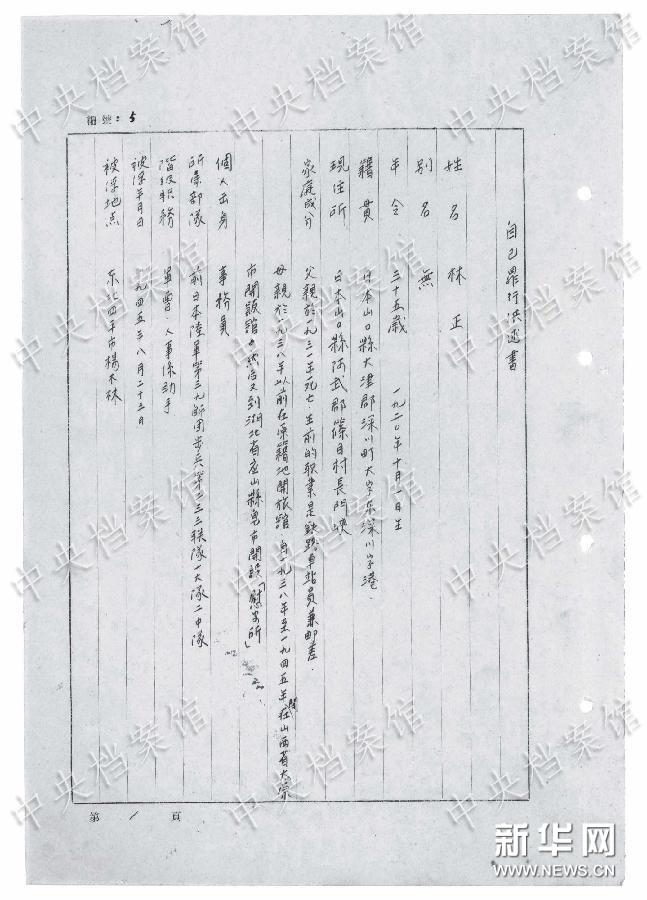 自己罪行供述書
姓名 林正
別名 無
年令 三十五歲 一九二〇年十月一日生
籍貫 日本山口縣大津郡深川町大字東深川字港.
現住所 日本山口縣阿武郡篠目村長門峽
家庭成分 父親於一九三一年死亡 生前的职業是鉄路車站員兼郵差.
母親於一九三八年以前在原籍地開旅館.自一九三八年至一九四五年在山西省太原
市開飯館。然后又到湖北省应山縣 市開設「慰安所」
個人出身 事務員
所屬部隊 前日本陸軍第三九師团步兵第二三三联隊一大隊二中隊
階级职務 軍曹 人事係助手
被俘年月日 一九四五年八月二十三日
被俘地点 东北四平市楊木林
第 1 頁
: 5
中央档案馆
新华网
WWW.NEWS.CN